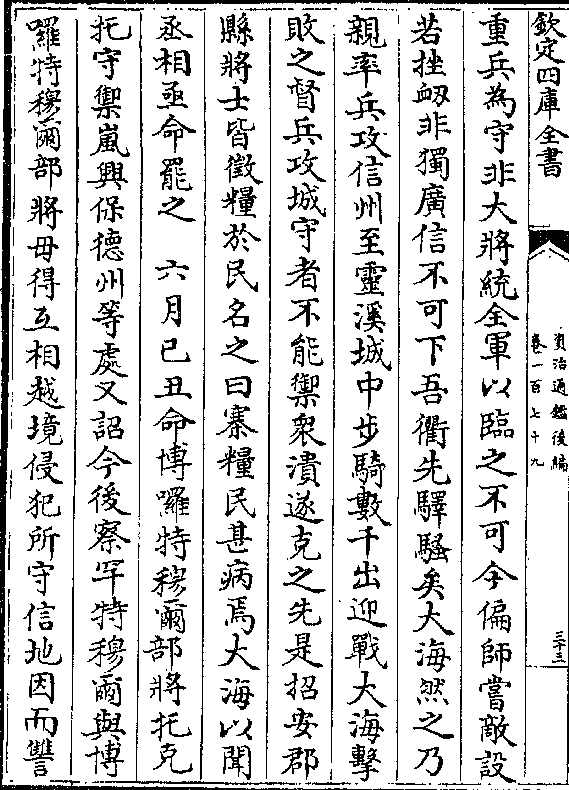 欽定四庫全書
資治通鑑後編
卷一百七十九
三十三
重兵為守非大將統全軍以臨之不可今偏師嘗敵設
若挫衂非獨廣信不可下吾衢先驛騷矣大海然之乃
親率兵攻信州至靈溪城中步騎數千出迎戰大海擊
敗之督兵攻城守者不能禦衆潰遂克之先是招安郡
縣將士皆徵糧於民名之曰寨糧民甚病焉大海以聞
丞相亟命罷之　六月己丑命博囉特穆爾部將托克
托守禦嵐興保德州等處又詔今後察罕特穆爾與博
囉特穆爾部將毋得互相越境侵犯所守信地因而讐